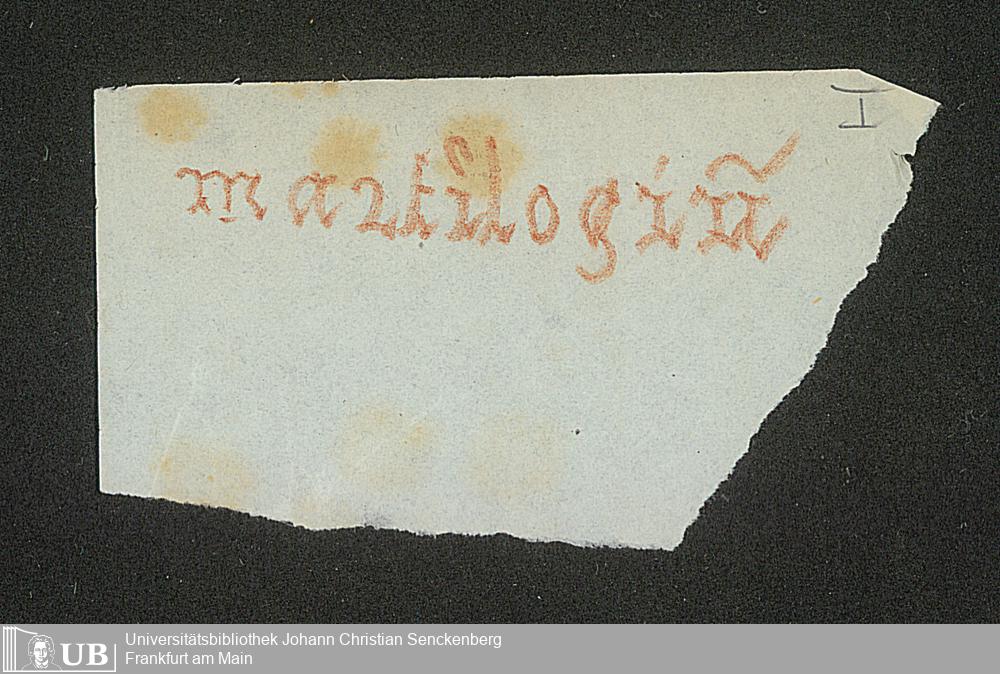 I
martilogiū
UB Universitätsbibliothek Johann Christian Senckenberg
Frankfurt am Main